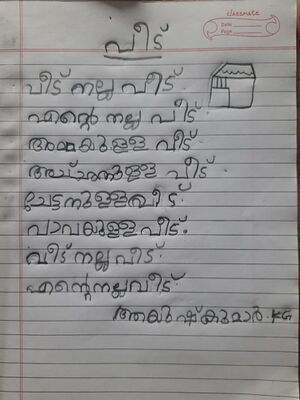 classmate
Date
Page
വീട്
വീട് നല്ല വീട്.
എന്റെ നല്ല വീട്.
അമ്മയുള്ള വീട്.
അച്ഛനുള്ള വീട്.
ചേട്ടനുള്ള വീട്.
വാവയുള്ള വീട്.
വീട് നല്ല വീട്.
എന്റെ നല്ല വീട്.
ആയുഷ്കുമാർ. KG